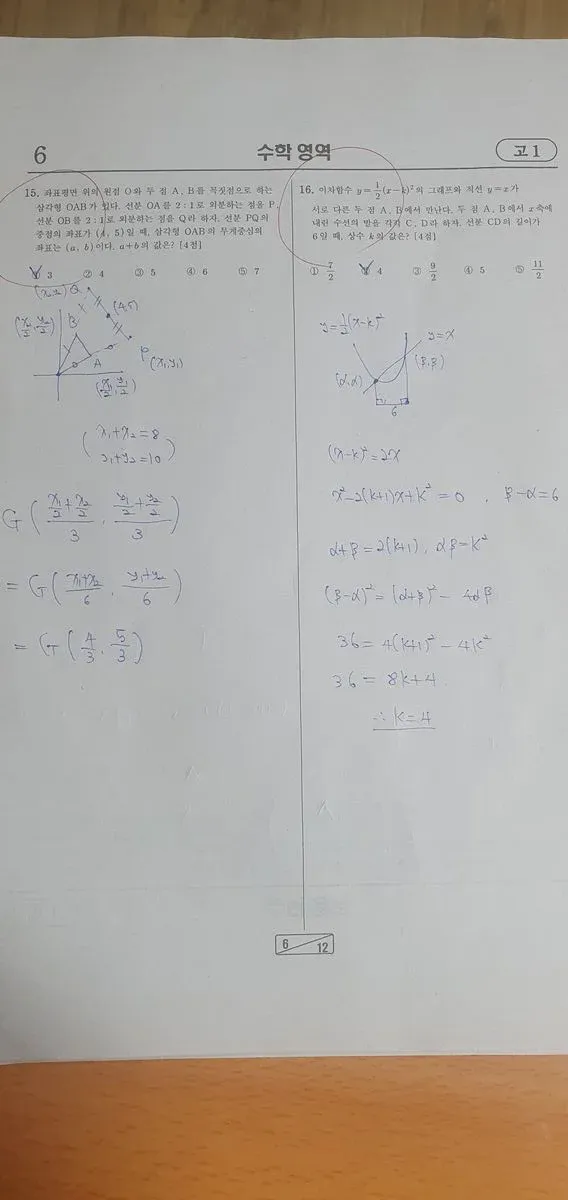 6
수학 영역
고 1
15. 좌표평면 위의 원점 O와 두 점 A, B를 꼭짓점으로 하는
삼각형 OAB가 있다. 선분 OA를 2 : 1로 외분하는 점을 P,
선분 OB를 2 : 1로 외분하는 점을 Q라 하자. 선분 PQ의
중점의 좌표가 (4, 5)일 때, 삼각형 OAB의 무게중심의
좌표는 (a, b)이다. a+b의 값은? [4점]
① 3 ② 4 ③ 5 ④ 6 ⑤ 7
(x₂,y₂) Q
(4,5)
(x₂/2, y₂/2)
B
P (x₁,y₁)
A
(x₁/2, y₁/2)
( x₁+x₂=8
y₁+y₂=10 )
G ( (x₁/2+x₂/2)/3 , (y₁/2+y₂/2)/3 )
= G ( (x₁+x₂)/6 , (y₁+y₂)/6 )
= G ( 4/3 , 5/3 )
16. 이차함수 y=1/2(x−k)²의 그래프와 직선 y=x가
서로 다른 두 점 A, B에서 만난다. 두 점 A, B에서 x축에
내린 수선의 발을 각각 C, D라 하자. 선분 CD의 길이가
6일 때, 상수 k의 값은? [4점]
① 7/2 ② 4 ③ 9/2 ④ 5 ⑤ 11/2
y=1/2(x−k)²
y=x
(β,β)
(α,α)
6
(x−k)²=2x
x²−2(k+1)x+k²=0 , β−α=6
α+β=2(k+1), αβ=k²
(β−α)²=(α+β)²−4αβ
36=4(k+1)²−4k²
36=8k+4.
∴ k=4
6
12